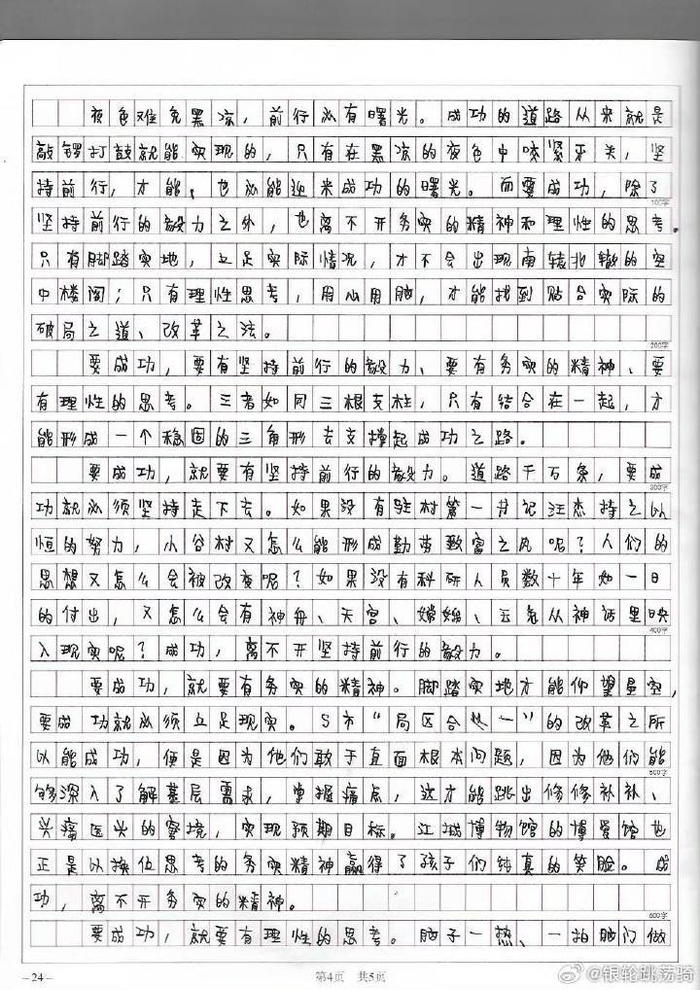 夜色难免黑凉，前行必有曙光。成功的道路从来就是
敲锣打鼓就能实现的，只有在黑凉的夜色中咬紧牙关，坚
持前行，才能、也必能迎来成功的曙光。而要成功，除了
100字
坚持前行的毅力之外，也离不开务实的精神和理性的思考。
只有脚踏实地，立足实际情况，才不会出现南辕北辙的空
中楼阁；只有理性思考，用心用脑，才能找到贴合实际的
破局之道、改革之法。
200字
要成功，要有坚持前行的毅力、要有务实的精神、要
有理性的思考。三者如同三根支柱，只有结合在一起，才
能形成一个稳固的三角形去支撑起成功之路。
要成功，就要有坚持前行的毅力。道路千万条，要成
300字
功就必须坚持走下去。如果没有驻村第一书记汪杰持之以
恒的努力，小谷村又怎么能形成勤劳致富之风呢？人们的
思想又怎么会被改变呢？如果没有科研人员数十年如一日
的付出，又怎么会有神舟、天宫、嫦娥、玉兔从神话里映
400字
入现实呢？成功，离不开坚持前行的毅力。
要成功，就要有务实的精神。脚踏实地才能仰望星空，
要成功就必须立足现实。S市“局区合一”的改革之所
以能成功，便是因为他们敢于直面根本问题，因为他们能
500字
够深入了解基层需求，掌握痛点，这才能跳出修修补补、
头痛医头的窘境，实现预期目标。江城博物馆的博爱馆也
正是以换位思考的务实精神赢得了孩子们纯真的笑脸。成
功，离不开务实的精神。
600字
要成功，就要有理性的思考。脑子一热、一拍脑门做
—24—
第4页 共5页
@银轮跳荡骑